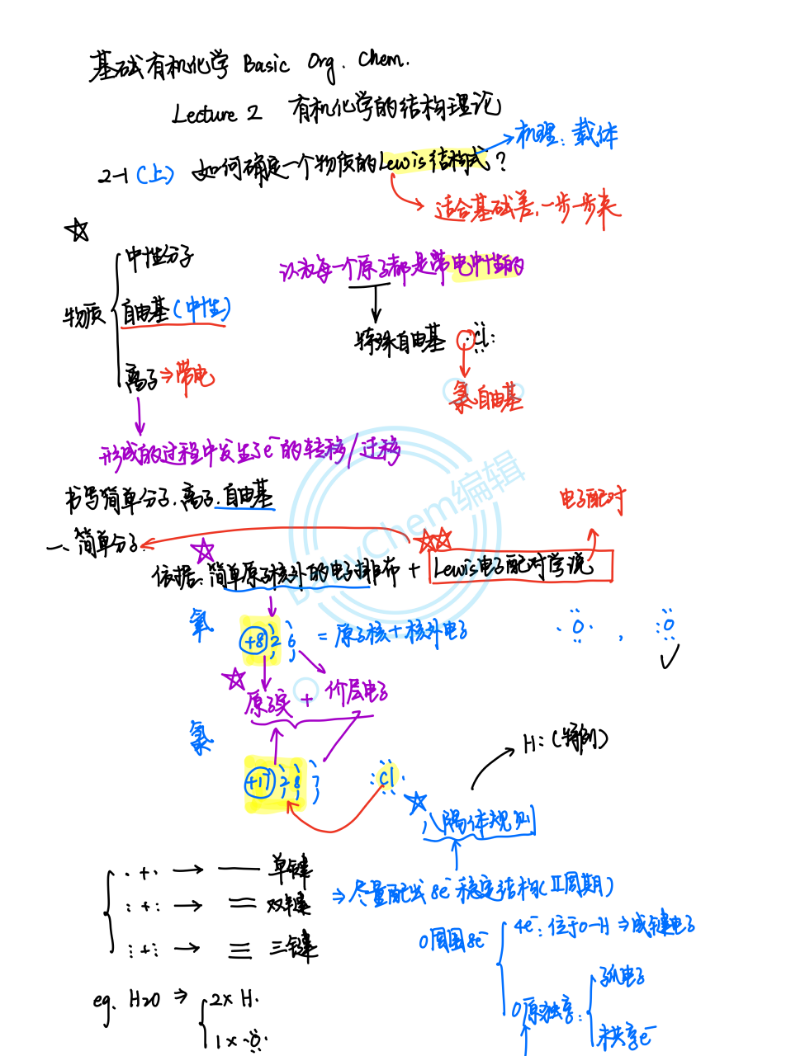 基础有机化学 Basic Org. Chem.
Lecture 2 有机化学的结构理论
→机理:载体
2-1(上) 如何确定一个物质的Lewis结构式?
→适合基础差,一步一步来
☆
物质
中性分子
自由基(中性)
离子⇒带电
认为每一个原子都是带电中性的
特殊自由基 ·Cl:
氯自由基
形成的过程中发生了e⁻的转移/迁移
书写简单分子.离子.自由基
电子配对
一、简单分子
依据:简单原子核外的电子排布 + Lewis电子配对学说
氧 +8 2 6 = 原子核+核外电子 ·O· , :O
原子实 + 价层电子
氯
+17 2 8 7 :Cl·
H:(特例)
八隅体规则
· + · → — 单键
: + : → = 双键
⋮ + ⋮ → ≡ 三键
⇒尽量配出8e⁻稳定结构(II周期)
O周围8e⁻
4e⁻:位于O-H⇒成键电子
O原独享:
孤电子
未共享e⁻
eg. H2O ⇒
2× H·
1× ·O·